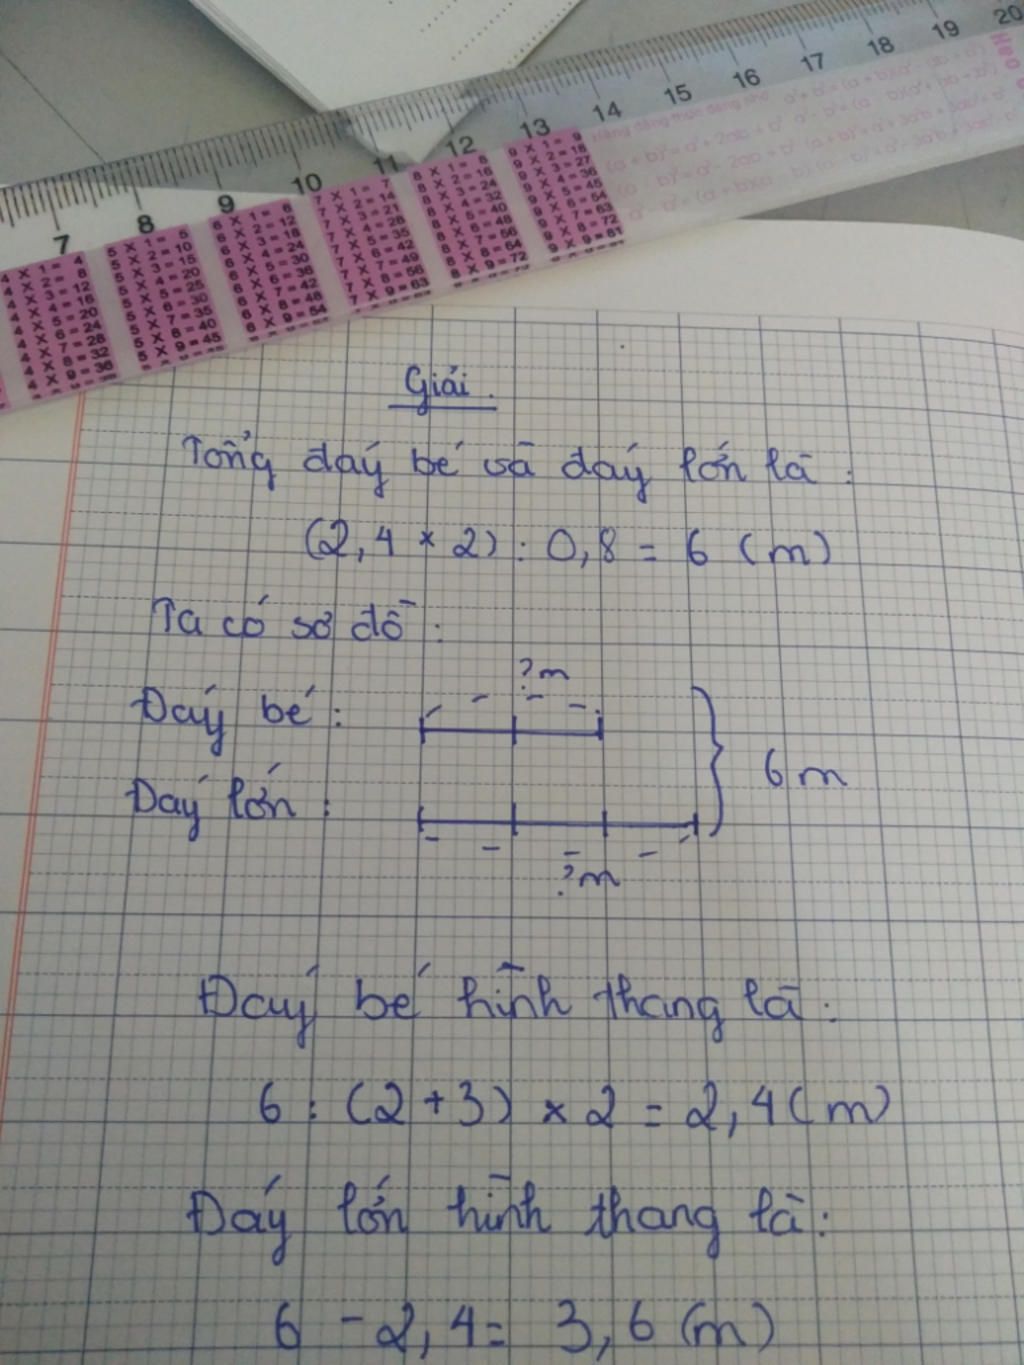 7 8 9 10 11 12 13 14 15 16 17 18 19 20
4 X 1 = 4
4 X 2 = 8
4 X 3 = 12
4 X 4 = 16
4 X 5 = 20
4 X 6 = 24
4 X 7 = 28
4 X 8 = 32
4 X 9 = 36
5 X 1 = 5
5 X 2 = 10
5 X 3 = 15
5 X 4 = 20
5 X 5 = 25
5 X 6 = 30
5 X 7 = 35
5 X 8 = 40
5 X 9 = 45
6 X 1 = 6
6 X 2 = 12
6 X 3 = 18
6 X 4 = 24
6 X 5 = 30
6 X 6 = 36
6 X 7 = 42
6 X 8 = 48
6 X 9 = 54
7 X 1 = 7
7 X 2 = 14
7 X 3 = 21
7 X 4 = 28
7 X 5 = 35
7 X 6 = 42
7 X 7 = 49
7 X 8 = 56
7 X 9 = 63
8 X 1 = 8
8 X 2 = 16
8 X 3 = 24
8 X 4 = 32
8 X 5 = 40
8 X 6 = 48
8 X 7 = 56
8 X 8 = 64
8 X 9 = 72
9 X 1 = 9
9 X 2 = 18
9 X 3 = 27
9 X 4 = 36
9 X 5 = 45
9 X 6 = 54
9 X 7 = 63
9 X 8 = 72
9 X 9 = 81
Giải.
Tổng đáy bé và đáy lớn là :
(2,4 x 2) : 0,8 = 6 (m)
Ta có sơ đồ :
?m
Đáy bé :
6 m
Đáy lớn :
?m
Đáy bé hình thang là :
6 : (2 + 3) x 2 = 2,4 (m)
Đáy lớn hình thang là :
6 - 2,4 = 3,6 (m)